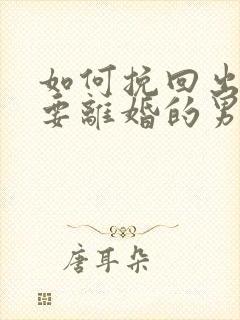 如何挽回出
要離婚的男
唐耳朵